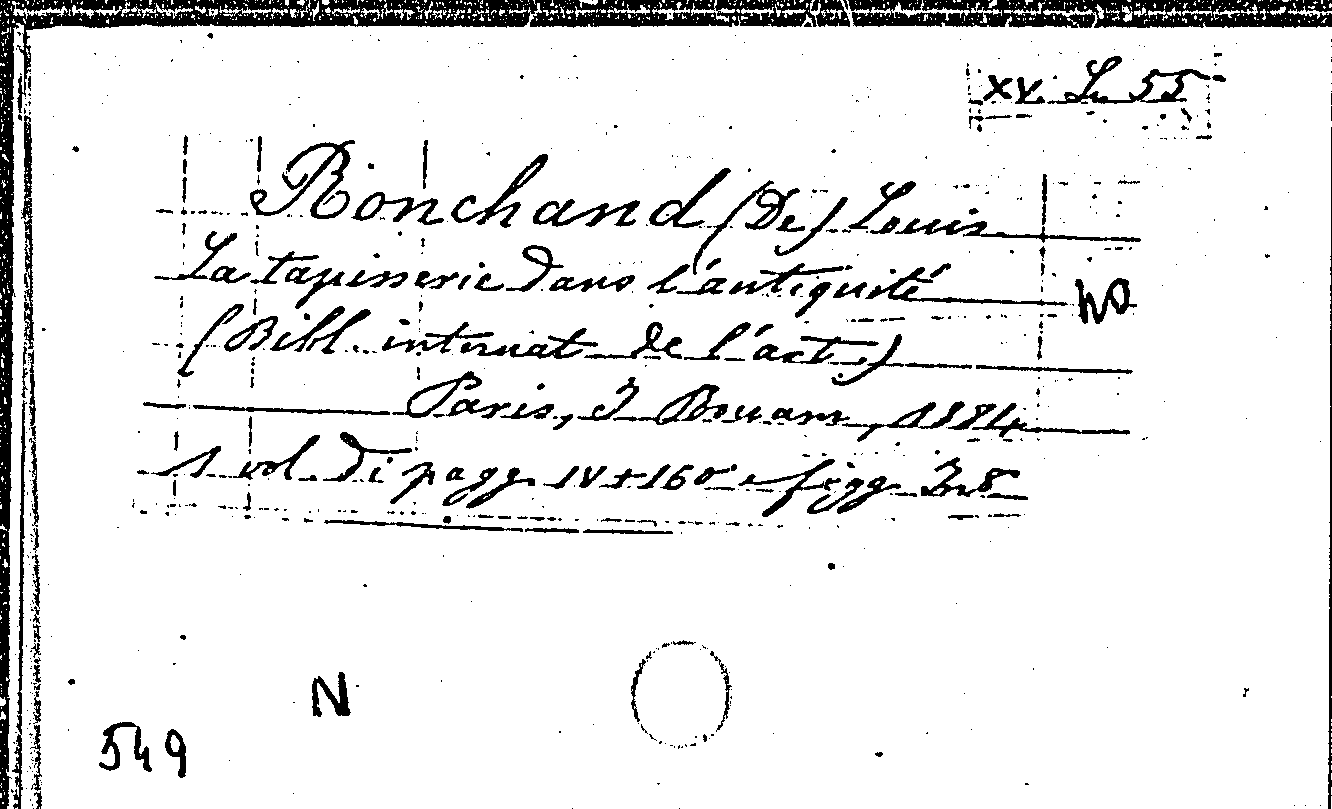 XV. L. 55
Ronchand (De) Louis
La tapisserie dans l'antiquité
(Bibl. internat. de l'art.)
Paris, J Rouam, 1884
1 vol. di pagg. IV+160 e figg. In 8°
N
549